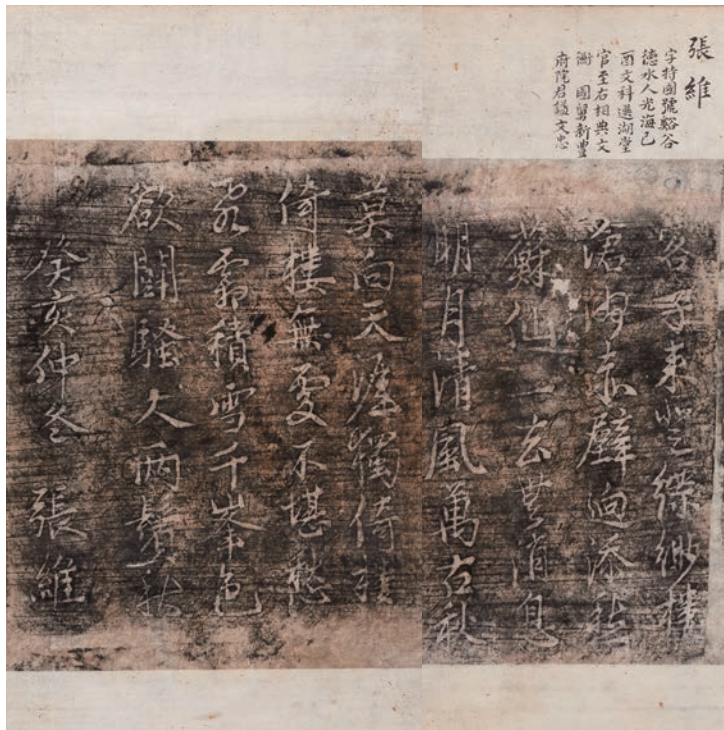 張維
字持國號谿谷
德水人光海己
酉文科選湖堂
官至右相典文
衡 國舅新豐
府院君諡文忠
客子來登縹緲樓
滄洲赤壁迥添愁
蘇仙一去無消息
明月清風萬古秋
莫向天涯獨倚樓
倚樓無處不堪愁
君看積雪千峯色
欲鬪騷人兩鬢秋
癸亥仲冬 張維